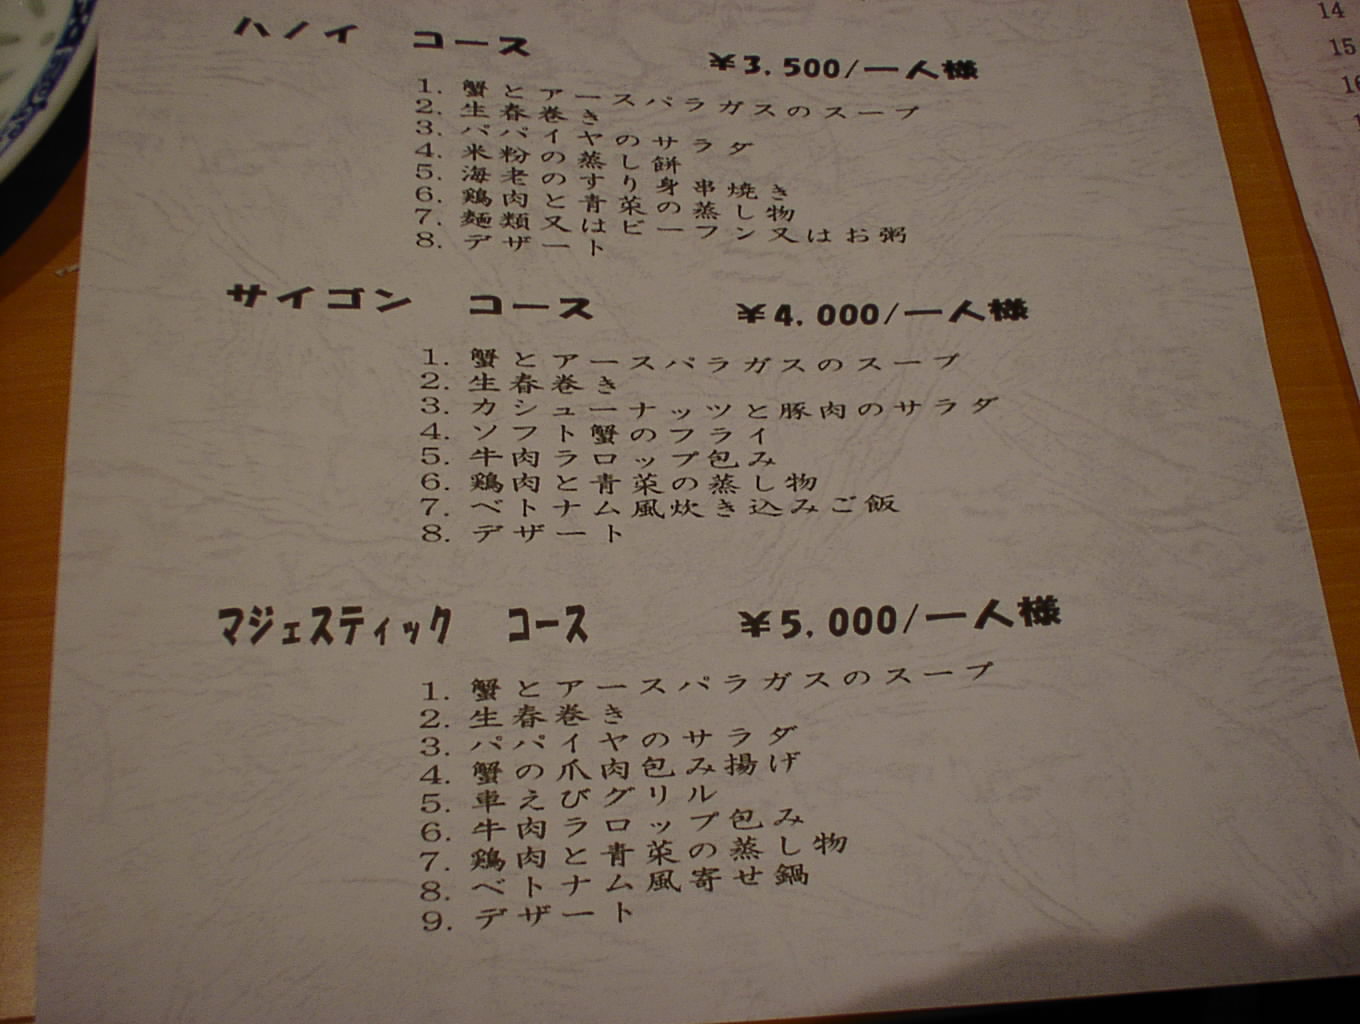 ハノイ　コース　　¥3,500/一人様
1. 蟹とアースパラガスのスープ
2. 生春巻き
3. パパイヤのサラダ
4. 米粉の蒸し餅
5. 海老のすり身串焼き
6. 鶏肉と青菜の蒸し物
7. 麺類又はビーフン又はお粥
8. デザート
サイゴン　コース　　¥4,000/一人様
1. 蟹とアースパラガスのスープ
2. 生春巻き
3. カシューナッツと豚肉のサラダ
4. ソフト蟹のフライ
5. 牛肉ラロップ包み
6. 鶏肉と青菜の蒸し物
7. ベトナム風炊き込みご飯
8. デザート
マジェスティック　コース　　¥5,000/一人様
1. 蟹とアースパラガスのスープ
2. 生春巻き
3. パパイヤのサラダ
4. 蟹の爪肉包み揚げ
5. 車えびグリル
6. 牛肉ラロップ包み
7. 鶏肉と青菜の蒸し物
8. ベトナム風寄せ鍋
9. デザート
14
15